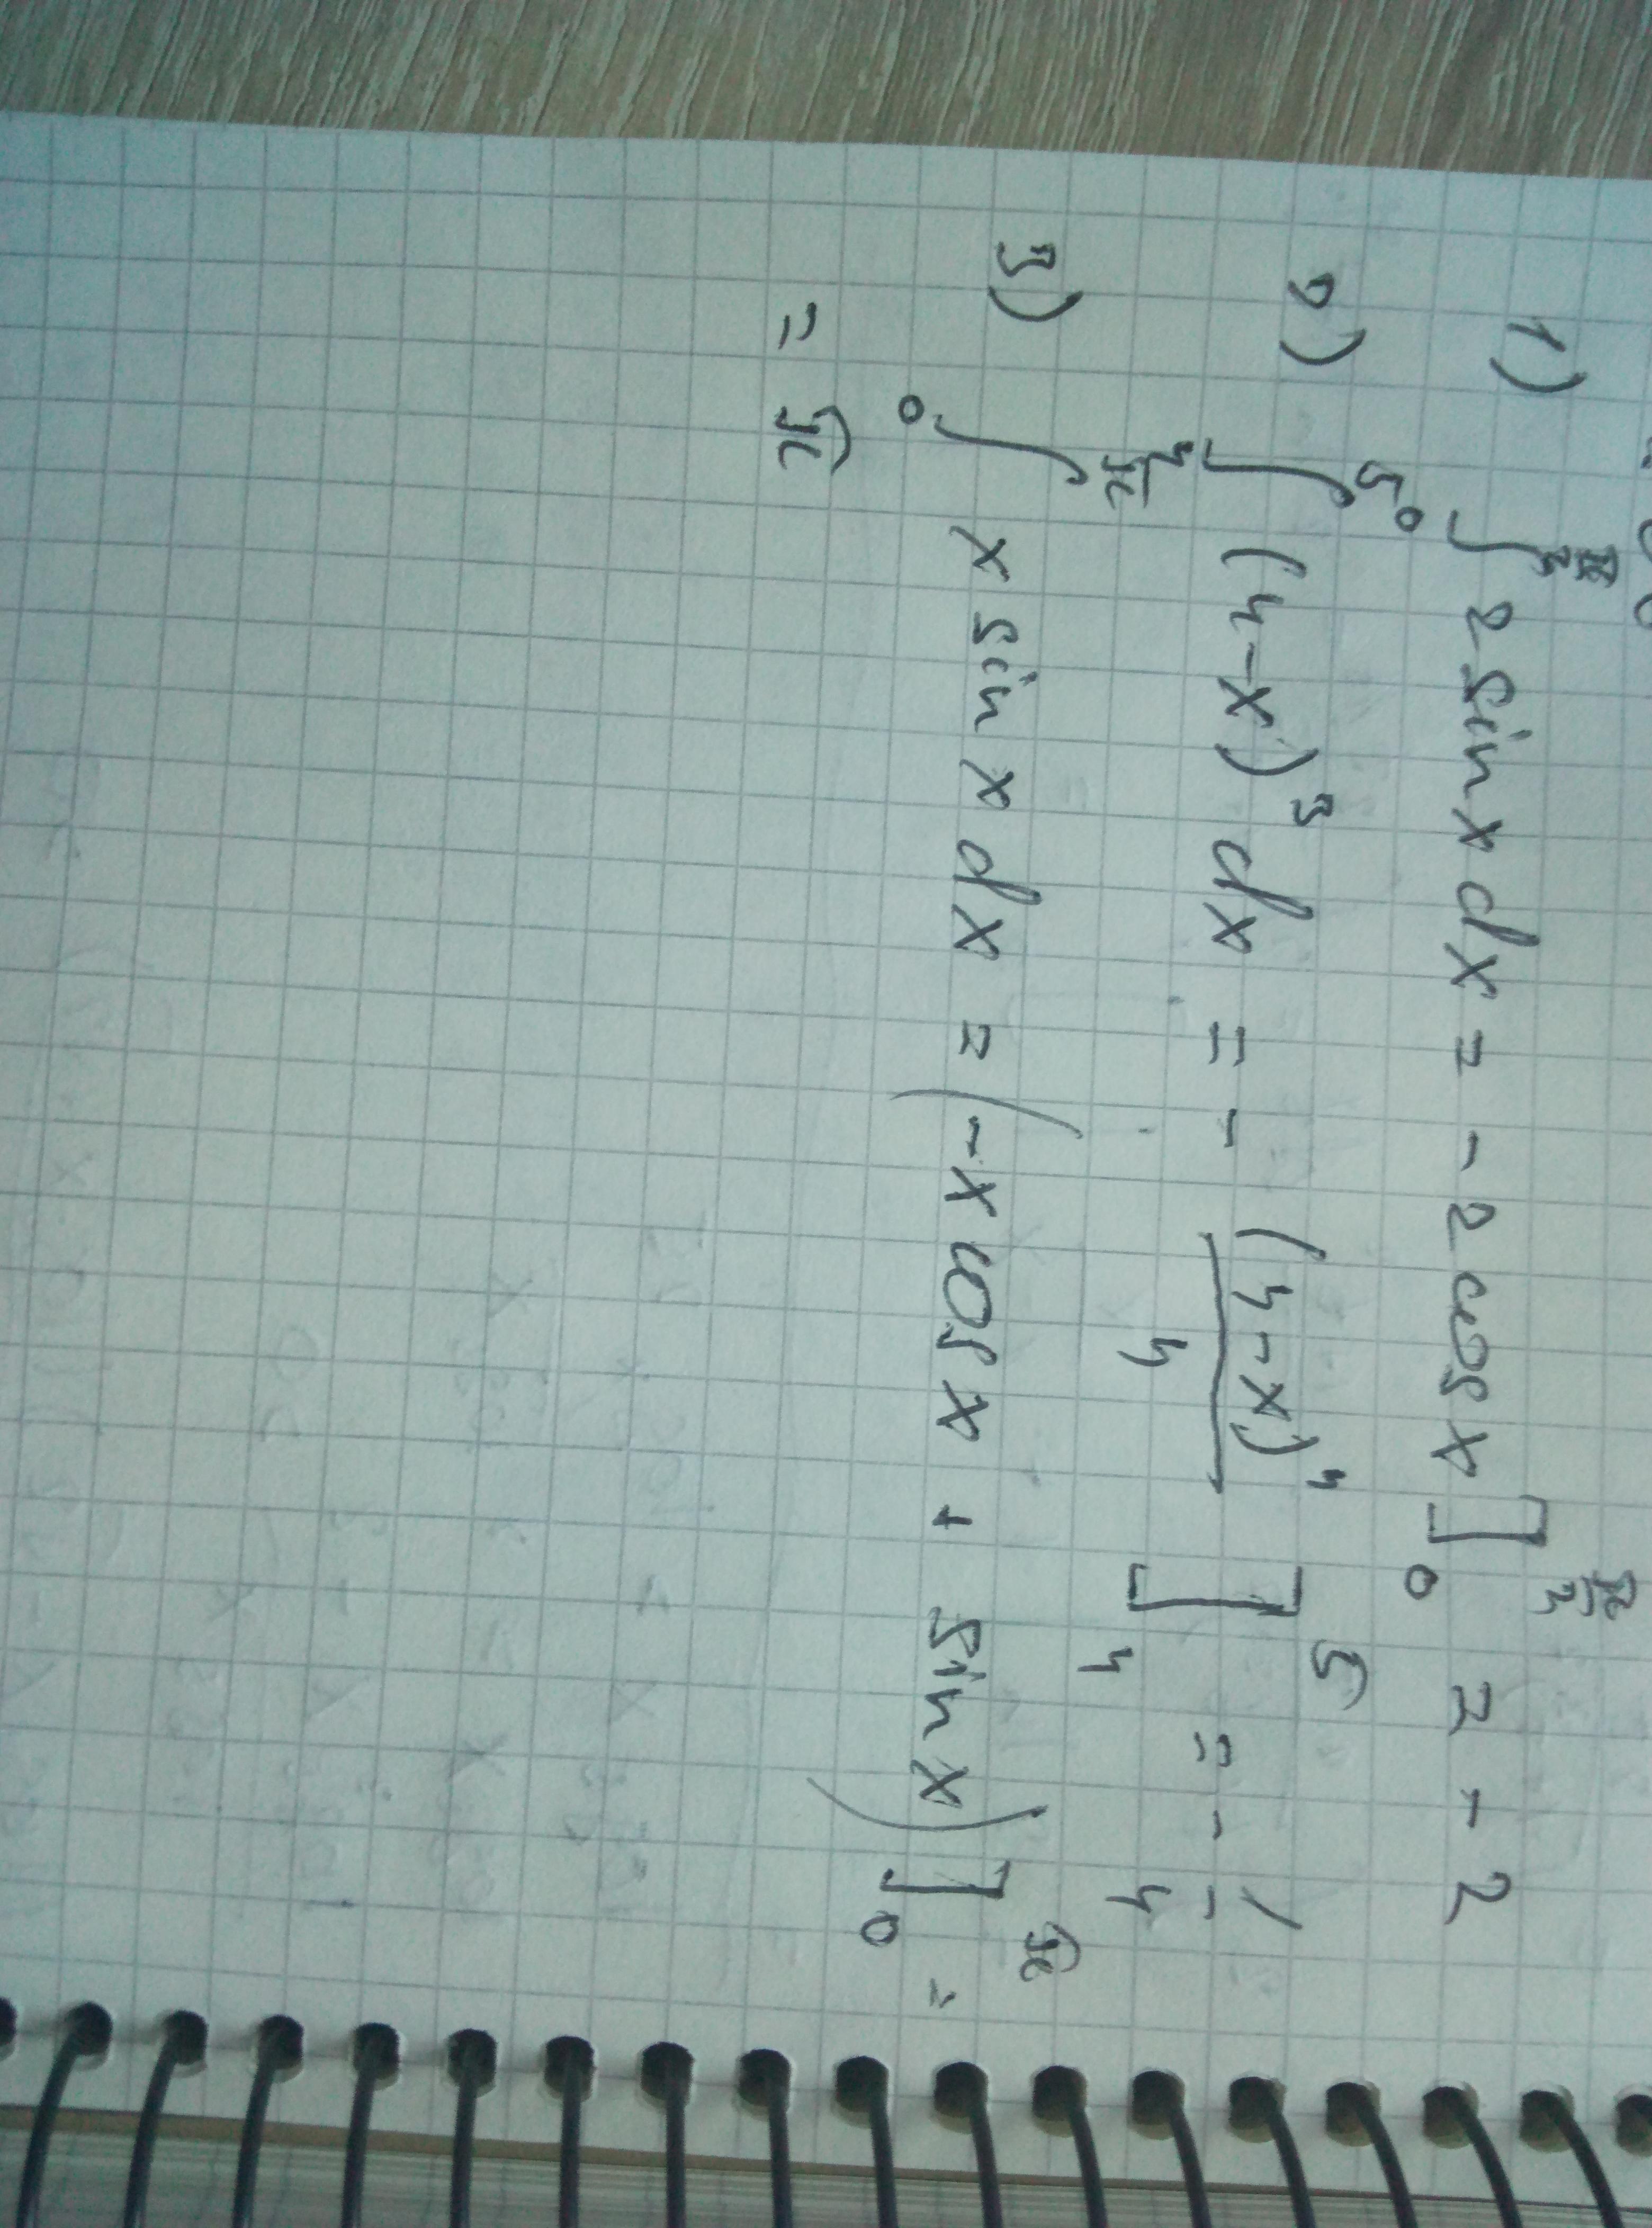 1) ∫₀^(π/2) 2 sin x dx = - 2 cos x ]₀^(π/2) = - 2
2) ∫₄⁵ (4-x)³ dx = - (4-x)⁴/4 ]₄⁵ = - 1/4
3) ∫₀^π x sin x dx = (-x cos x + sin x) ]₀^π =
= π